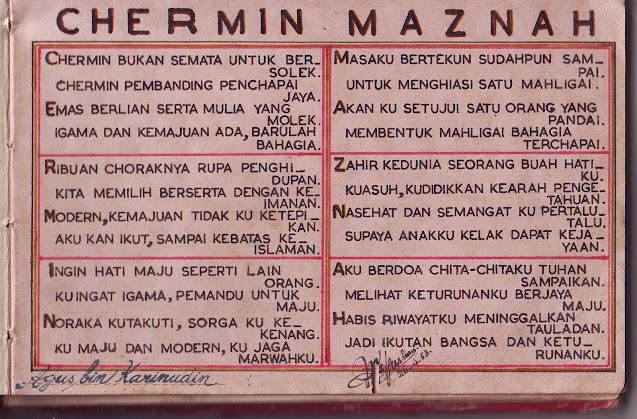 CHERMIN MAZNAH
CHERMIN BUKAN SEMATA UNTUK BER-
SOLEK.
CHERMIN PEMBANDING PENCHAPAI
JAYA.
EMAS BERLIAN SERTA MULIA YANG
MOLEK.
IGAMA DAN KEMAJUAN ADA, BARULAH
BAHAGIA.
RIBUAN CHORAKNYA RUPA PENGHI-
DUPAN.
KITA MEMILIH BERSERTA DENGAN KE-
IMANAN.
MODERN, KEMAJUAN TIDAK KU KETEPI-
KAN.
AKU KAN IKUT, SAMPAI KEBATAS KE-
ISLAMAN.
INGIN HATI MAJU SEPERTI LAIN
ORANG.
KUINGAT IGAMA, PEMANDU UNTUK
MAJU.
NORAKA KUTAKUTI, SORGA KU KE-
KENANG.
KU MAJU DAN MODERN, KU JAGA
MARWAHKU.
MASAKU BERTEKUN SUDAHPUN SAM-
PAI.
UNTUK MENGHIASI SATU MAHLIGAI.
AKAN KU SETUJUI SATU ORANG YANG
PANDAI.
MEMBENTUK MAHLIGAI BAHAGIA
TERCHAPAI.
ZAHIR KEDUNIA SEORANG BUAH HATI-
KU.
KUASUH, KUDIDIKKAN KEARAH PENGE-
TAHUAN.
NASEHAT DAN SEMANGAT KU PERTALU-
TALU.
SUPAYA ANAKKU KELAK DAPAT KEJA-
YAAN.
AKU BERDOA CHITA-CHITAKU TUHAN
SAMPAIKAN.
MELIHAT KETURUNANKU BERJAYA
MAJU.
HABIS RIWAYATKU MENINGGALKAN
TAULADAN.
JADI IKUTAN BANGSA DAN KETU-
RUNANKU.
Agus bin Karimudin